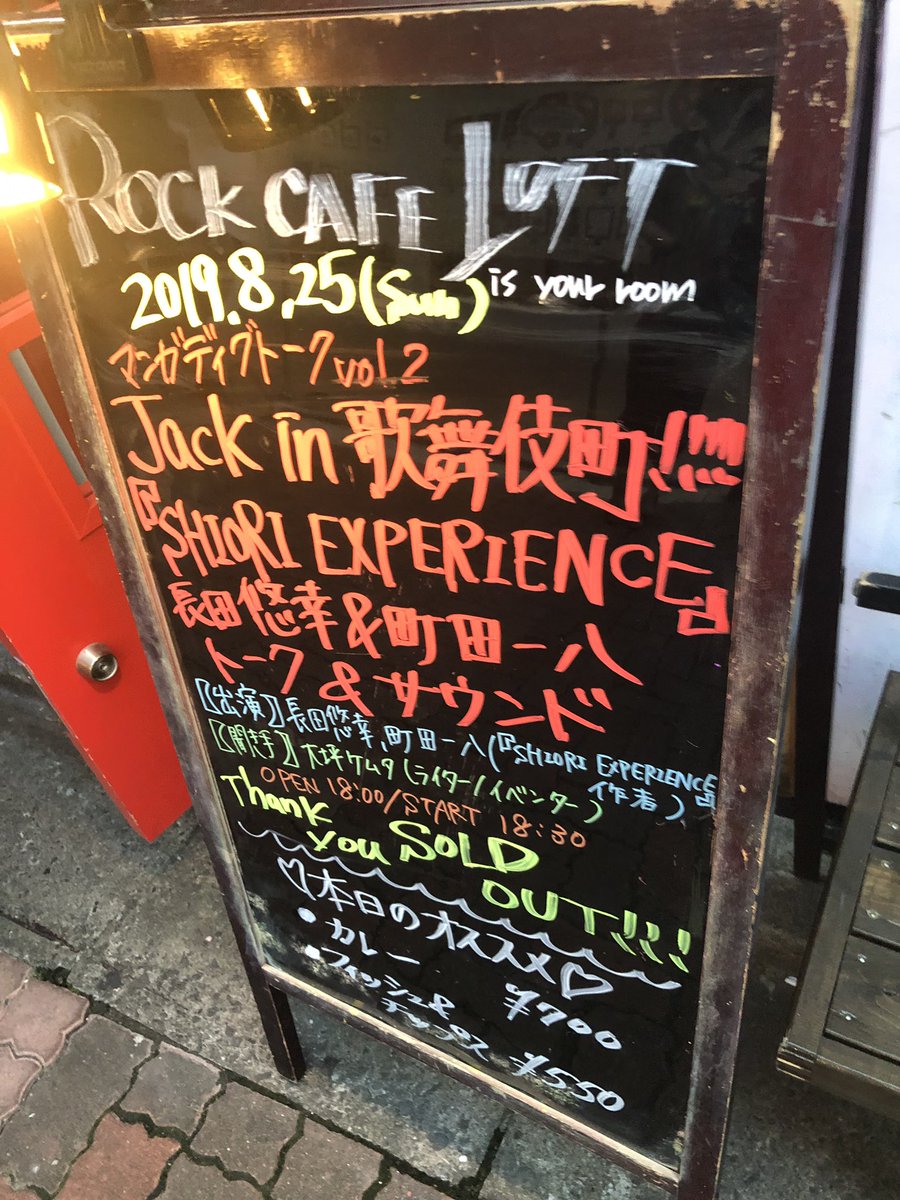 ROCK CAFE LOFT
is your room
2019.8.25(Sun)
マンガディグトークvol.2
Jack in 歌舞伎町!!!!!
『SHIORI EXPERIENCE』
長田悠幸&町田一八
トーク&サウンド
【出演】長田悠幸、町田一八(『SHIORI EXPERIENCE』
作者)
【聞き手】大坪ケムタ(ライター/イベンター)
OPEN 18:00/START 18:30
Thank
you SOLD
OUT!!!!
♡本日のオススメ♡
•カレー ¥700
•フィッシュ&
チップス ¥550